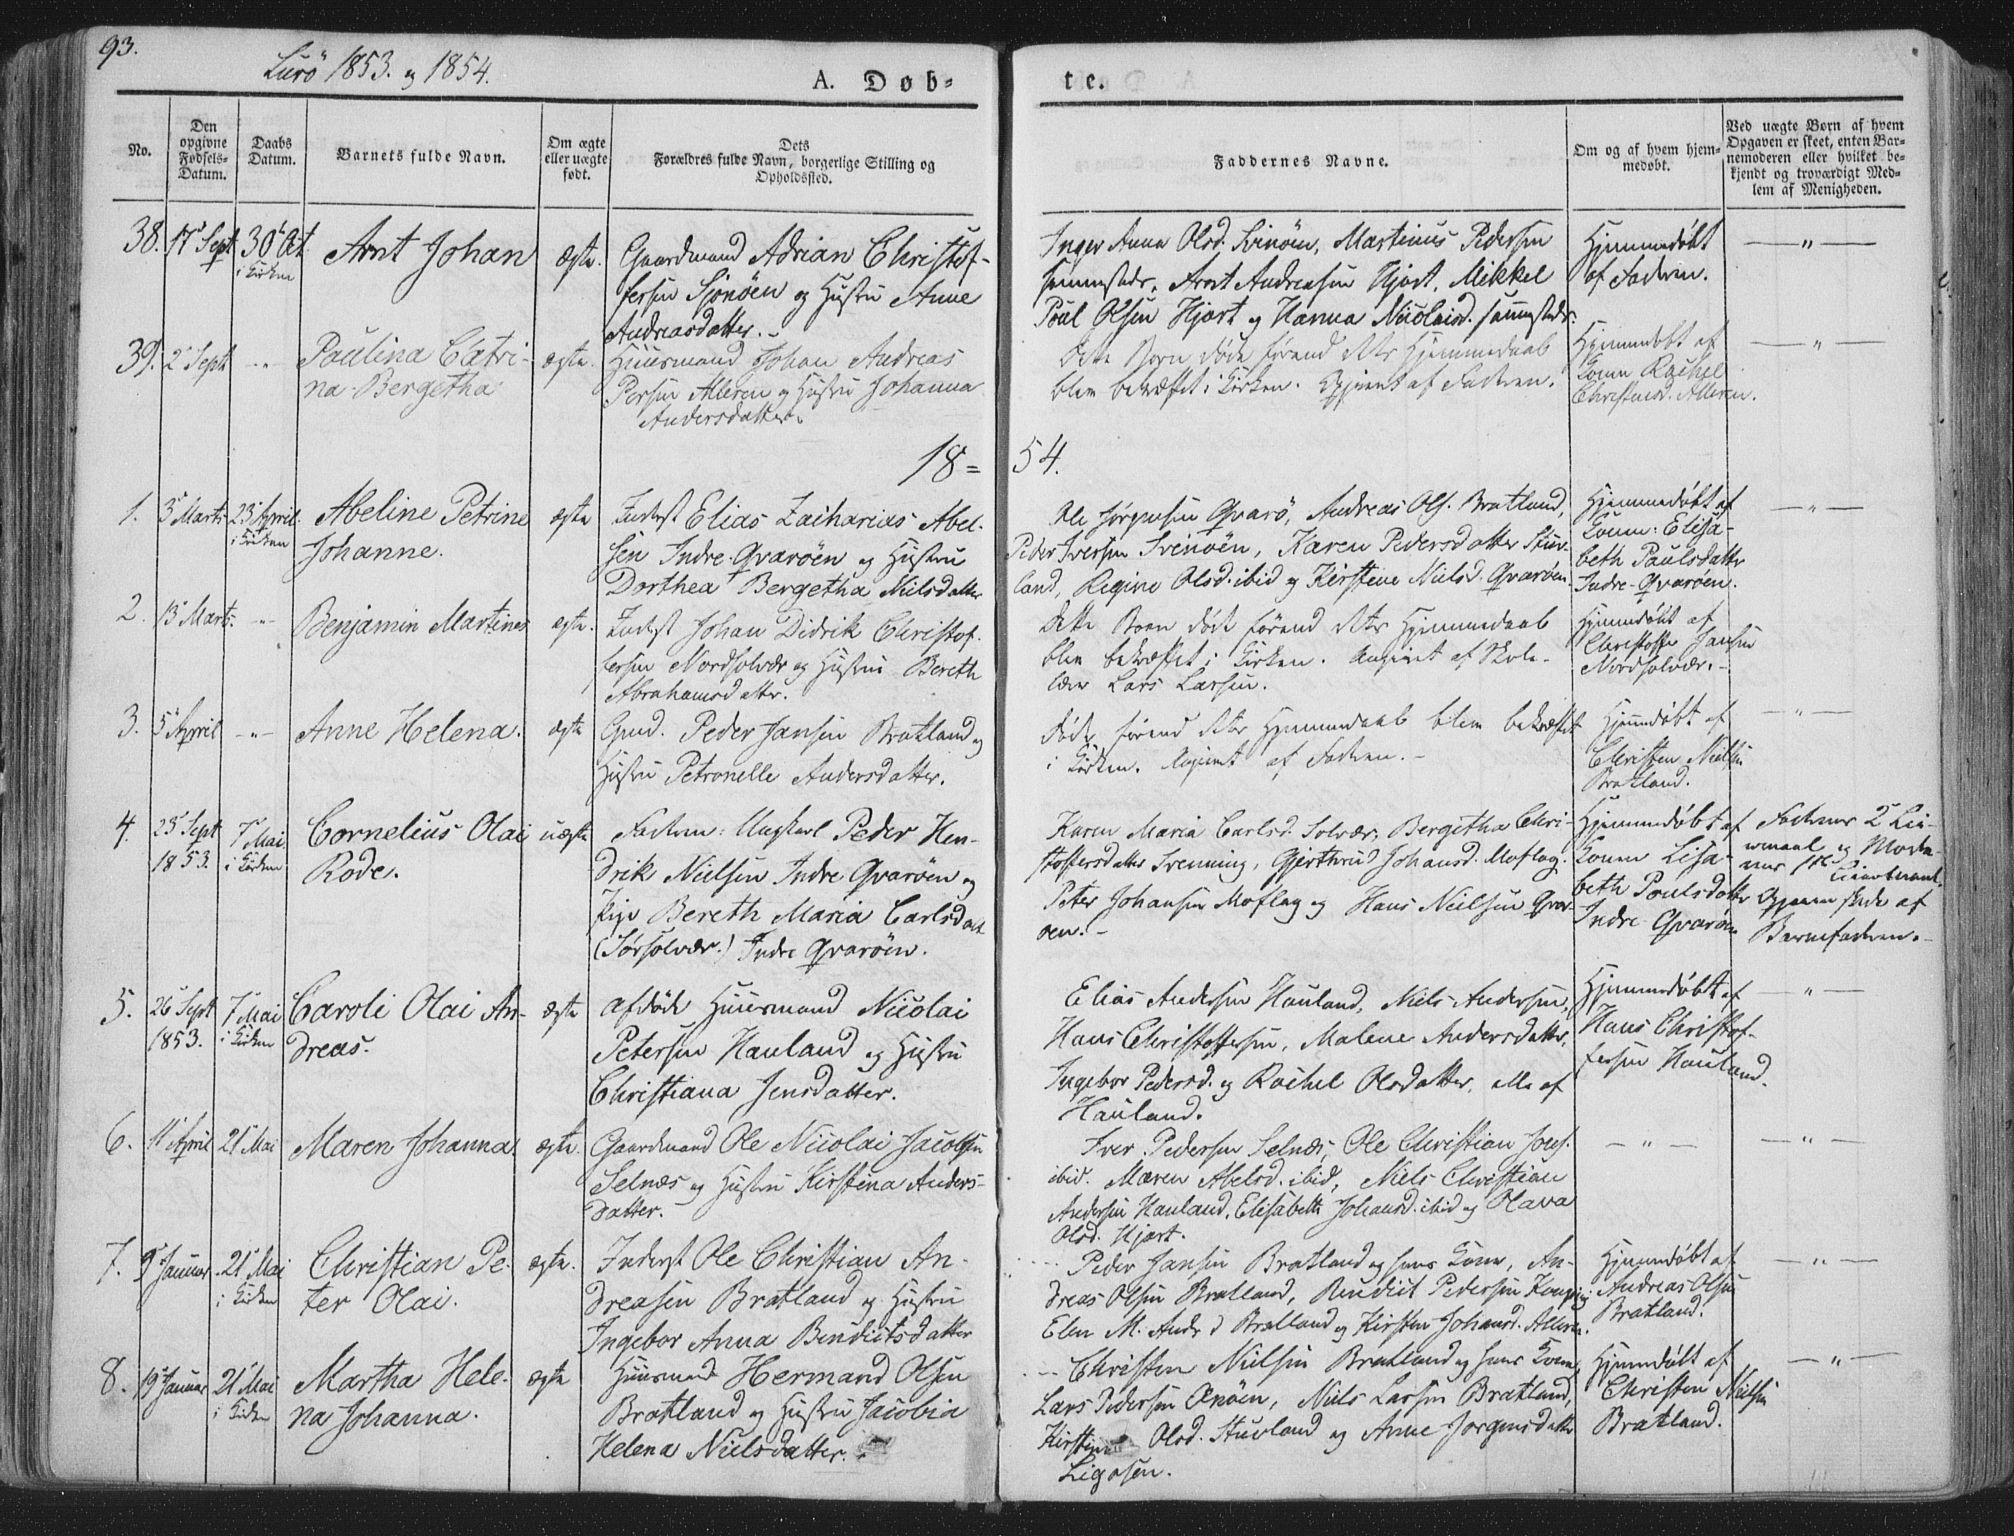 93.
Lurö 1853. og 1854.
A. Døb-
te.
No.
Den opgivne Fødsels-Datum.
Daabs Datum.
Barnets fulde Navn.
Om ægte eller uægte født.
Dets
Forældres fulde Navn, borgerlige Stilling og
Opholdssted.
Faddernes Navne.
Om og af hvem hjem-
medøbt.
Ved uægte Born af hvem
Opgaven er skeet, enten Bar-
nemoderen eller hvilket be-
kjendt og troværdigt Med-
lem af Menigheden.
38. 17 Sept 30 Oct i Kirken Arnt Johan ægte.
Gaardmand Adrian Christof-
fersen Sjonöen og Hustru Anne
Andreasdatter.
Inger Anna Olsd. Svinöen, Martinus Pedersen
sammesteds, Arnt Andreasen Hjort, Mikkel
Poul Olsen Hjort og Hanna Nicolaisd. sammesteds.
Hjemmedöbt
af Faderen.
— " —
39. 2 Sept - " - Paulina Catri-
na Bergetha
ægte.
Huusmand Johan Andreas
Persen Alleren og Hustru Johanna
Andersdatter.
Dette Barn döde förend dets Hjemmedaab
blev bekræftet i Kirken. Opgivet af Faderen.
Hjemmedöbt af
Konen Rachel
Christensd. Alleren.
— " —
18=54.
1. 3 Marts 23 April i Kirken Abeline Petrine
Johanne.
ægte
Inderst Elias Zacharias Abel-
sen Indre-Qvaröen og Hustru
Dorthea Bergetha Nielsdatter
Ole Jörgensen Qvarö, Andreas Ols. Bratland,
Peder Iversen Svinöen, Karen Pedersdatter Stuv-
land, Regine Olsd. ibid og Kirstine Nielsd. Qvaröen.
Hjemmedöbt af
Konen: Elisa-
beth Paulsdatter
Indre-Qvaröen.
— " —
2. 13 Marts. - " - Benjamin Martines ægte.
Inderst Johan Didrik Christof-
fersen Nordsolvær og Hustru Bereth
Abrahamsdatter.
Dette Barn döde förend dets Hjemmedaab
blev bekræftet i Kirken. Angivet af Skole-
lærer Lars Larsen.
Hjemmedöbt af
Christoffer Jansen
Nordsolvær.
3. 5 April - " - Anne Helena. ægte
Gmd. Peder Jansen Bratland og
Hustru Petronelle Andersdatter.
Döde förend dets Hjemmedaab blev bekræftet
i Kirken. Angivet af Faderen.
Hjemmedöbt af
Christen Nielsen
Bratland.
— " —
4. 23 Sept 1853. 7 Mai i Kirken Cornelius Olai
Rode.
uægte
Faderen: Ungkarl Peder Hen-
drik Nielsen Indre Qvaröen og
Pige Bereth Maria Carlsdatt
(Sörsolvær.) Indre Qvaröen.
Karen Maria Carlsd. Solvær, Bergitha Chri-
stoffersdatter Svenning, Gjerthrud Johansd. Moflag.
Peter Johansen Moflag og Hans Nielsen Qvar-
öen.
Hjemmedöbt af
Konen Lisa-
beth Poulsdatter
Indre Qvaröen
Faderens 2 Lei-
ermaal og Mode-
rens 1ste Leiermaal.
Opgaven skede af
Barnefaderen.
5. 26 Sept 1853. 7 Mai i Kirken Caroli Olai An-
dreas.
ægte
afdöde Huusmand Nicolai
Petersen Hauland og Hustru
Christiana Jensdatter.
Elias Andersen Hauland, Niels Andersen,
Hans Christoffersen, Malene Andersdatter,
Ingebor Pedersd. og Rachel Olsdatter, alle af
Hauland.
Hjemmedöbt af
Hans Christof-
fersen Hauland.
— " —
6. 11 April 21 Mai Maren Johanna. ægte.
Gaardmand Ole Nicolai Jacobsen
Selnæs og Hustru Kirstina Anders-
datter.
Iver Pedersen Selnæs, Ole Christian Jons.
ibid. Maren Abelsd. ibid, Niels Christian
Andersen Hauland, Elisabeth Johansd. ibid og Olava
Olsd. Hjort.
— " —
— " —
7. 9 Januar 21 Mai i Kirken Christian Pe-
ter Olai.
ægte.
Inderst Ole Christian An-
dreasen Bratland og Hustru
Ingebor Anna Bendictsdatter
Peder Jansen Bratland og hans Kone, An-
dreas Olsen Bratland, Bendict Pedersen
Elen M. Andr d Bratland og Kirsten Johansd. Alleren.
Hjemmedöbt af
Andreas Olsen
Bratland.
— " —
8. 19 Januar 21 Mai i Kirken Martha Hele-
na Johanna.
ægte
Huusmand Hermand Olsen
Bratland og Hustru Jacobia
Helena Nielsdatter.
Christen Nielsen Bratland og hans Kone,
Lars Pedersen Onöen, Niels Larsen Bratland,
Kirsten Olsd. Stuvland og Anne Jorgensdatter
Ligosen.
Hjemmedöbt af
Christen Nielsen
Bratland.
— " —